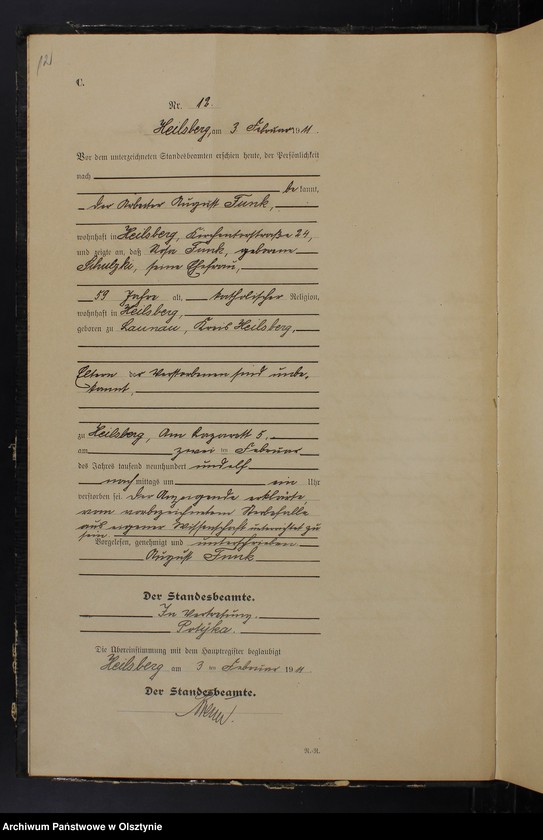 121
C.
Nr. 12.
Heilsberg, am 3 Februar 1911.
Vor dem unterzeichneten Standesbeamten erschien heute, der Persönlichkeit
nach
bekannt,
der Arbeiter August Funk,
wohnhaft in Heilsberg, Kirchentorstraße 24,
und zeigte an, daß Rosa Funk, geborene
Schulzki, seine Ehefrau,
59 Jahre alt, katholischer Religion,
wohnhaft in Heilsberg,
geboren zu Launau, Kreis Heilsberg,
Eltern der Verstorbenen sind unbe-
kannt.
zu Heilsberg, Am Lazarett 5,
am zwei ten Februar
des Jahres tausend neunhundert und elf
nachmittags um ein Uhr
verstorben sei. Der Anzeigende erklärte,
vom vorbezeichneten Sterbefalle
aus eigener Wissenschaft unterrichtet zu
sein.
Vorgelesen, genehmigt und unterschrieben
August Funk
Der Standesbeamte.
In Vertretung.
Potyka.
Die Übereinstimmung mit dem Hauptregister beglaubigt
Heilsberg am 3 ten Februar 1911
Der Standesbeamte.
R.-R.
Archiwum Państwowe w Olsztynie